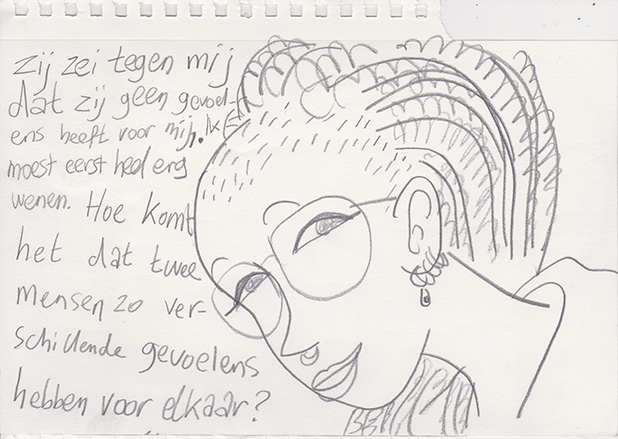 Zij zei tegen mij
dat zij geen gevoel-
ens heeft voor mij. Ik
moest eerst heel erg
wenen. Hoe komt
het dat twee
mensen zo ver-
schillende gevoelens
hebben voor elkaar?